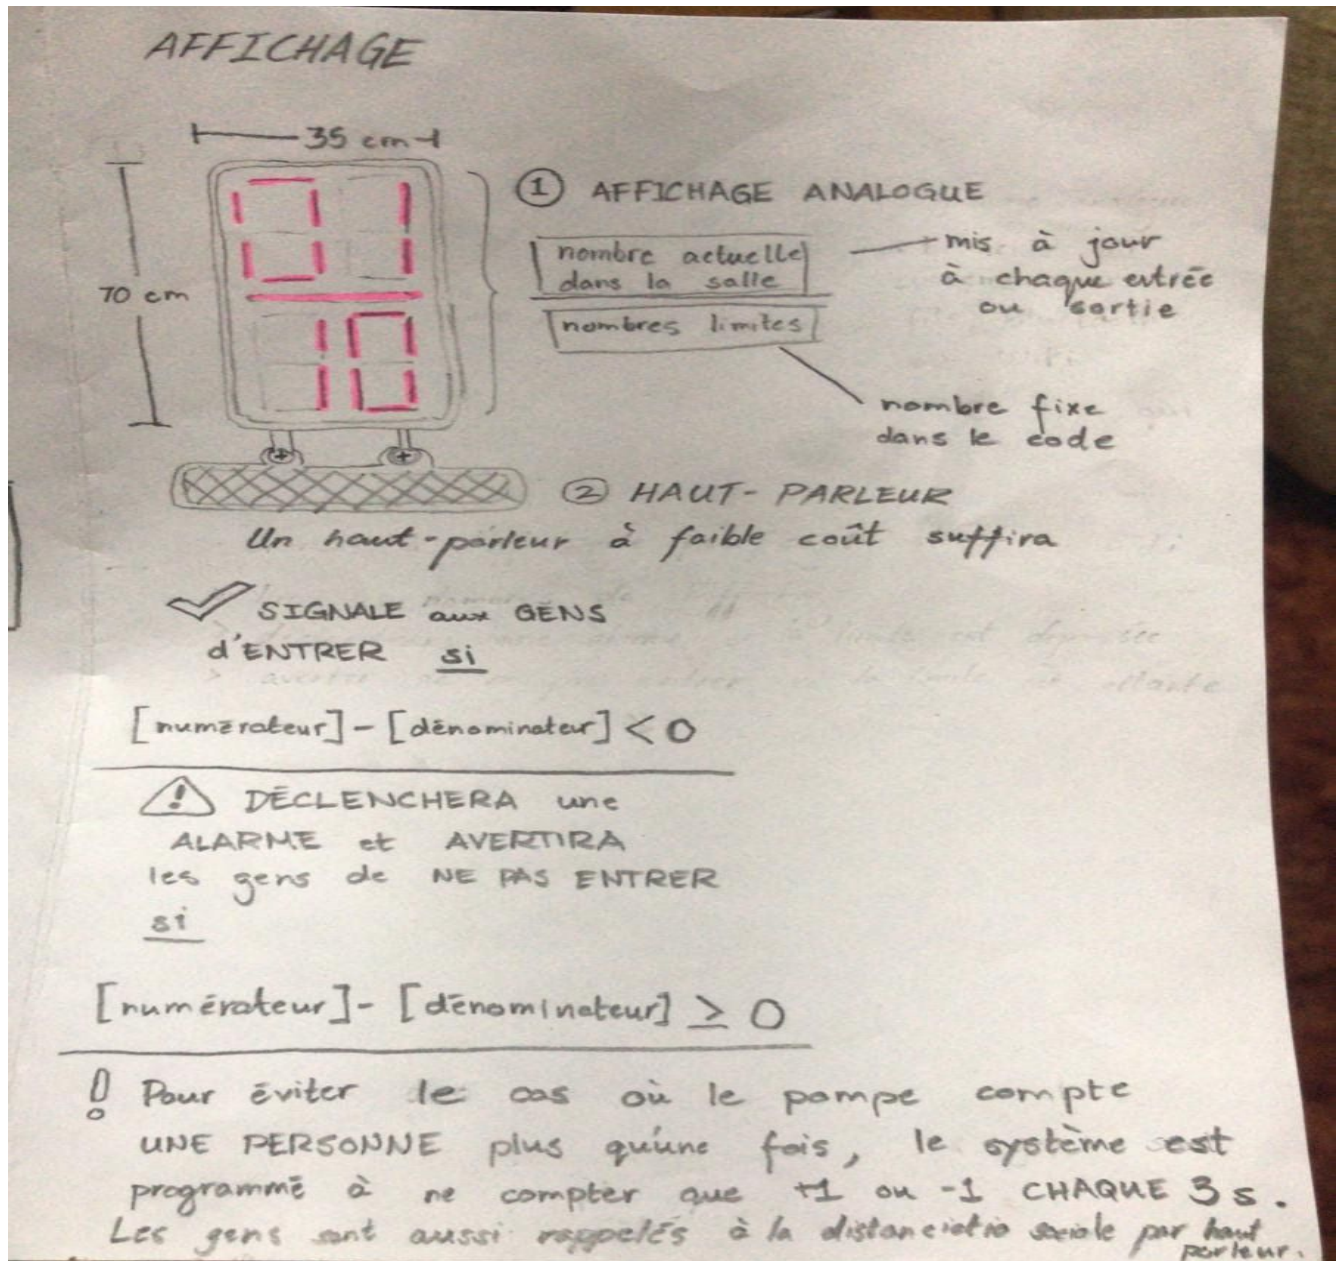 AFFICHAGE
35 cm
70 cm
01
10
① AFFICHAGE ANALOGUE
nombre actuelle
dans la salle
mis à jour
à chaque entrée
ou sortie
nombres limites
nombre fixe
dans le code
② HAUT-PARLEUR
Un haut-parleur à faible coût suffira
SIGNALE aux GENS
d'ENTRER si
[numérateur] - [dénominateur] < 0
! DÉCLENCHERA une
ALARME et AVERTIRA
les gens de NE PAS ENTRER
si
[numérateur] - [dénominateur] ≥ 0
! Pour éviter le cas où le pompe compte
UNE PERSONNE plus qu'une fois, le système est
programmé à ne compter que +1 ou -1 CHAQUE 3 s.
Les gens sont aussi rappelés à la distanciatio sociale par haut
parleur.